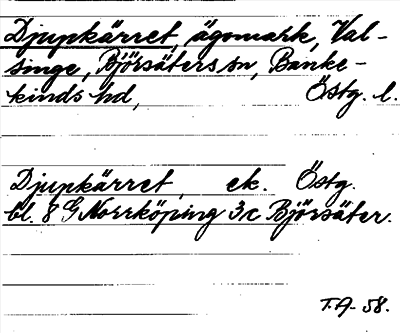 Djupkärret, ägomark, Val-
singe, Björsäters sn, Banke-
kinds hd, Östg. l.
Djupkärret, ek. Östg.
bl. 8 G Norrköping 3c Björsäter.
T.A. 58.